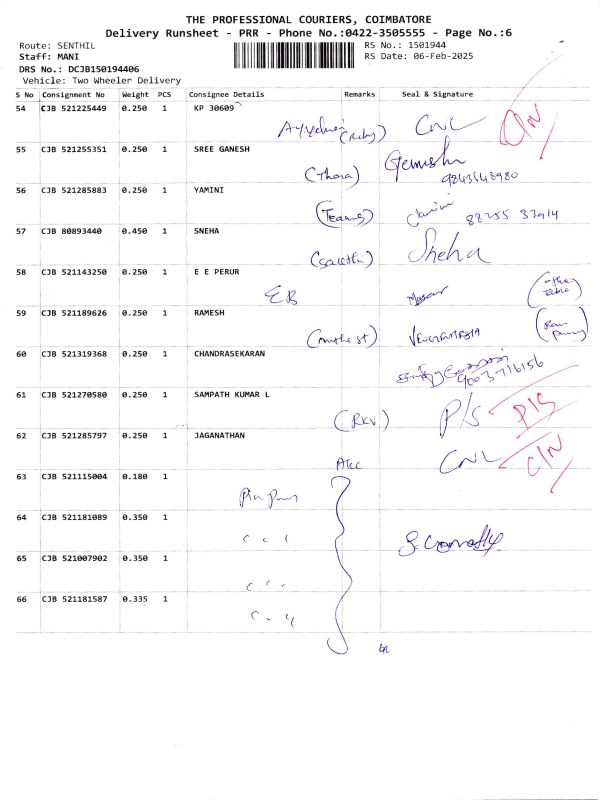 THE PROFESSIONAL COURIERS, COIMBATORE
Delivery Runsheet - PRR - Phone No.:0422-3505555 - Page No.:6
Route: SENTHIL
RS No.: 1501944
Staff: MANI
RS Date: 06-Feb-2025
DRS No.: DCJB150194406
Vehicle: Two Wheeler Delivery
S No Consignment No Weight PCS Consignee Details Remarks Seal & Signature
54 CJB 521225449 0.250 1 KP 30609
CNL
55 CJB 521255351 0.250 1 SREE GANESH
56 CJB 521285883 0.250 1 YAMINI
57 CJB 80893440 0.450 1 SNEHA
Sneha
58 CJB 521143250 0.250 1 E E PERUR
EB
59 CJB 521189626 0.250 1 RAMESH
60 CJB 521319368 0.250 1 CHANDRASEKARAN
61 CJB 521270580 0.250 1 SAMPATH KUMAR L
(RKV) P/S P/S
62 CJB 521285797 0.250 1 JAGANATHAN
CNL C/N
63 CJB 521115004 0.180 1
64 CJB 521181089 0.350 1
65 CJB 521007902 0.350 1
66 CJB 521181587 0.335 1